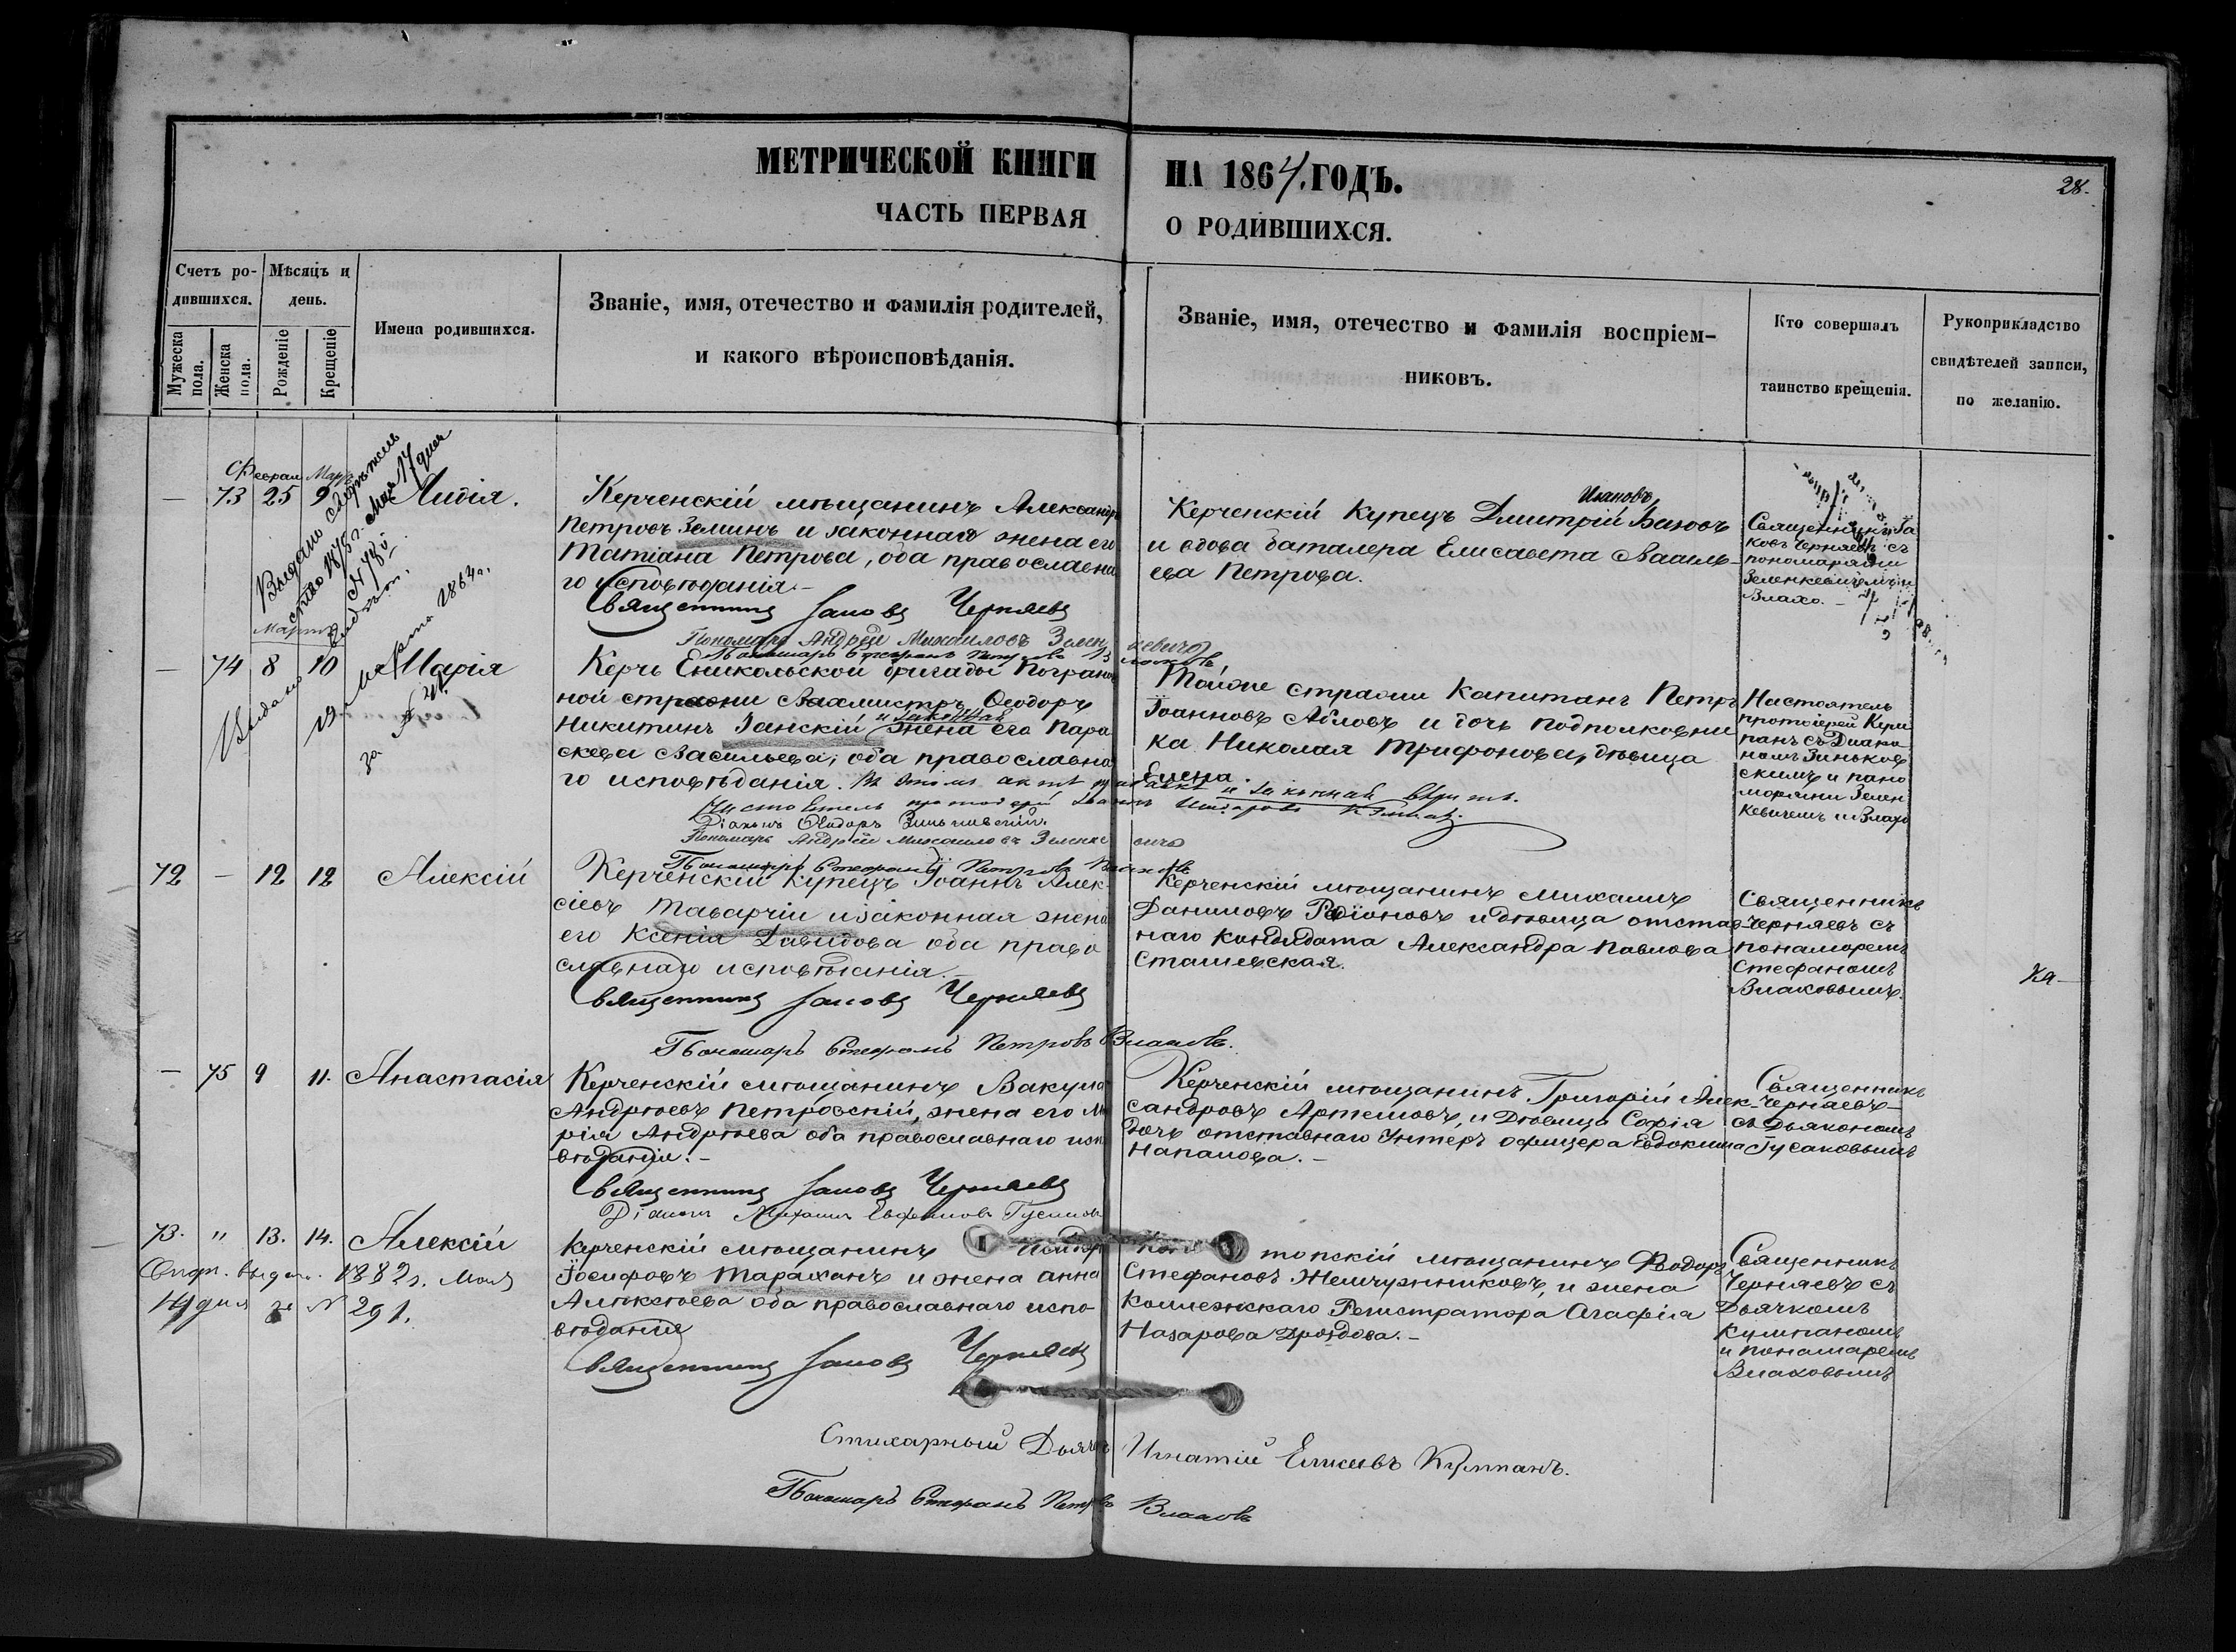 МЕТРИЧЕСКОЙ КНИГИ НА 1864. ГОДЪ.
28.
ЧАСТЬ ПЕРВАЯ О РОДИВШИХСЯ.
Счетъ родившихся.
Мужеска пола.
Женска пола.
Мѣсяцъ и день.
Рожденіе
Крещеніе
Имена родившихся.
Званіе, имя, отечество и фамилія родителей,
и какого вѣроисповѣданія.
Званіе, имя, отечество и фамилія воспріем-
никовъ.
Кто совершалъ
таинство крещенія.
Рукоприкладство
свидѣтелей записи,
по желанію.
Феврал Мар
— 73 25 9 Лидія.
Выдано свидѣтель
ство 1875 г. Мая 17 дня
Керченскій мѣщанинъ Александръ
Петровъ Земинъ и законная жена его
Татіана Петрова, оба православна
го исповѣданія.-
Священникъ Іаковъ Черняевъ
Пономарь Андрей Михаиловъ Зеленкевичъ
Пономарь Стефанъ Петровъ Влаховъ
Ивановъ
Керченскій Купецъ Дмитрій
и вдова баталера Елисавета Василь-
ева Петрова.
Священникъ Іа
ковъ Черняевъ съ
пономарями
Зеленкевичемъ и
Влахо.-
Мартъ
— 74 8 10 Марія
Выдано 19 Марта 1864 г.
за №
Керчь Еникольской бригады Погранич
ной стражи Вахмистръ Ѳеодоръ
Никитинъ Занскій и законная жена его Пара
скева Васильева, оба православна
го исповѣданія. Въ этомъ актѣ
и законная вѣрить.
Настоятель протоіерей Іоаннъ
Діаконъ Ѳеодоръ Зиньковскій.
Пономарь Андрей Михаиловъ Зеленкевичъ
Пономарь Стефанъ Петровъ Влаховъ
Тойже стражи Капитанъ Петръ
Іоанновъ Абловъ и дочь подполковни
ка Николая Трифонова, дѣвица
Елена.
Настоятель
протоіерей Кум
панъ съ Діако
номъ Зиньков
скимъ и поно
морями Зелен
кевичемъ и Влахо
72 — 12 12 Алексій
Керченскій купецъ Іоаннъ Алек-
сіевъ Таварчіи и законная жена
его Ксенія Давидова оба право
славнаго исповѣданія.-
Священникъ Іаковъ Черняевъ
Пономарь Стефанъ Петровъ Влаховъ.
Керченскій мѣщанинъ Михаилъ
Даниловъ Родіоновъ и дѣвица отстав-
наго кандидата Александра Павлова
Сташевская.
Священникъ
Черняевъ съ
понаморемъ
Стефаномъ
Влаховымъ.
— 75 9 11. Анастасія
Керченскій мѣщанинъ Вакула
Андреевъ Петровскій, жена его Ма
рія Андреева оба православнаго испо
вѣданія.-
Священникъ Іаковъ Черняевъ
Діаконъ Михаилъ Евфимовъ Гусаковъ
Керченскій мѣщанинъ Григорій Алек-
сандровъ Артемовъ, и дѣвица Софія
дочь отставнаго Унтеръ офицера Евдокима
Напалова.-
Священникъ
Черняевъ
съ Дьякономъ
Гусаковымъ
73. " 13. 14. Алексій
выдан. 1882 г. Мая
14 дня за № 291.
Керченскій мѣщанинъ
Іосифовъ Тараханъ и жена Анна
Алексѣева оба православнаго испо-
вѣданія
Священникъ Іаковъ Черняевъ
мѣщанинъ Ѳеодоръ
Стефановъ Жемчужниковъ, и жена
Коллежскаго Регистратора Агафія
Назарова Дроздова.-
Священникъ
Черняевъ съ
Дьячкомъ
Кумпаномъ
и понамаремъ
Влаховымъ
Стихарный Дьячекъ Игнатій Елисеевъ Кумпанъ.
Пономарь Стефанъ Петровъ Влаховъ